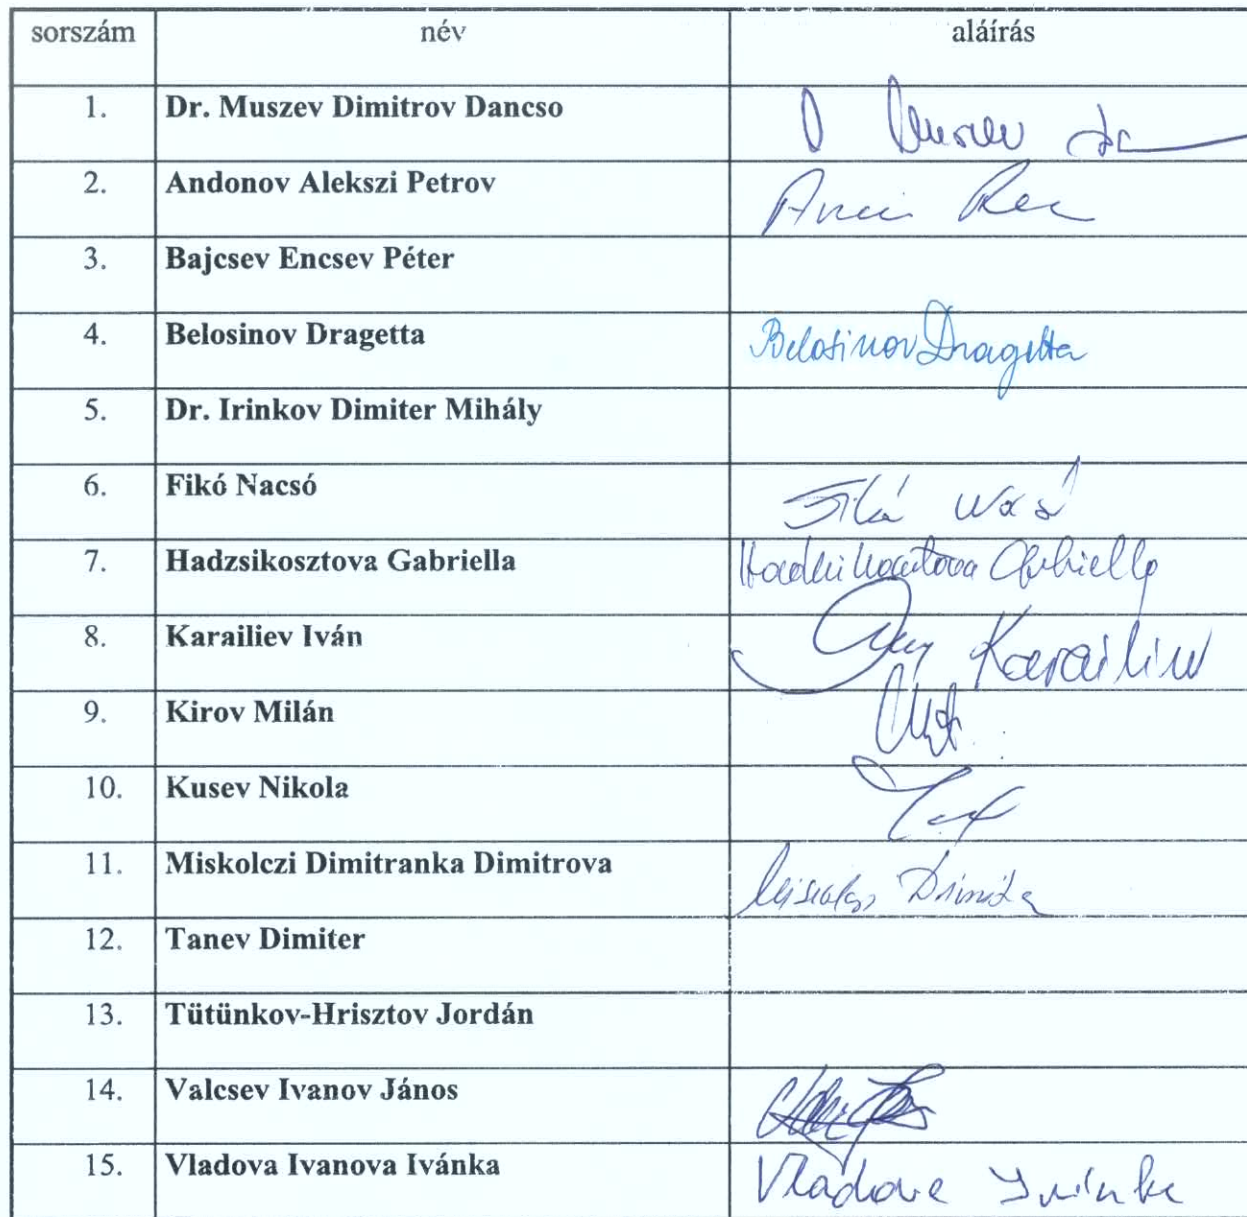 sorszám név aláírás
1. Dr. Muszev Dimitrov Dancso
2. Andonov Alekszi Petrov
3. Bajcsev Encsev Péter
4. Belosinov Dragetta Belosinov Dragetta
5. Dr. Irinkov Dimiter Mihály
6. Fikó Nacsó Fikó
7. Hadzsikosztova Gabriella Gabriella
8. Karailiev Iván Karailiev
9. Kirov Milán
10. Kusev Nikola
11. Miskolczi Dimitranka Dimitrova
12. Tanev Dimiter
13. Tütünkov-Hrisztov Jordán
14. Valcsev Ivanov János
15. Vladova Ivanova Ivánka Vladova Ivánka